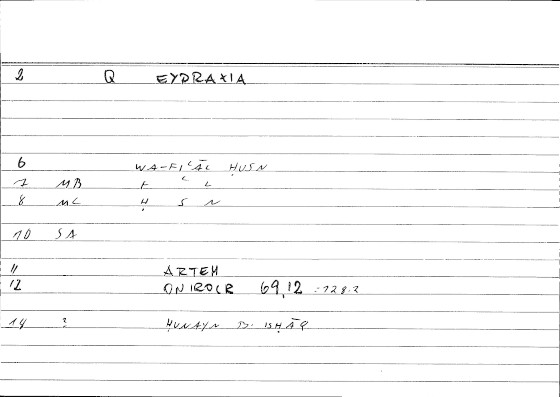 2 Q EYPRAXIA
6 WA-FIʿĀL ḤUSN
7 MB F ʿ L
8 ML Ḥ S N
10 SA
11 ARTEM
12 ONIROCR 69,12 :128.2
14 ? ḤUNAYN B. ISḤĀQ